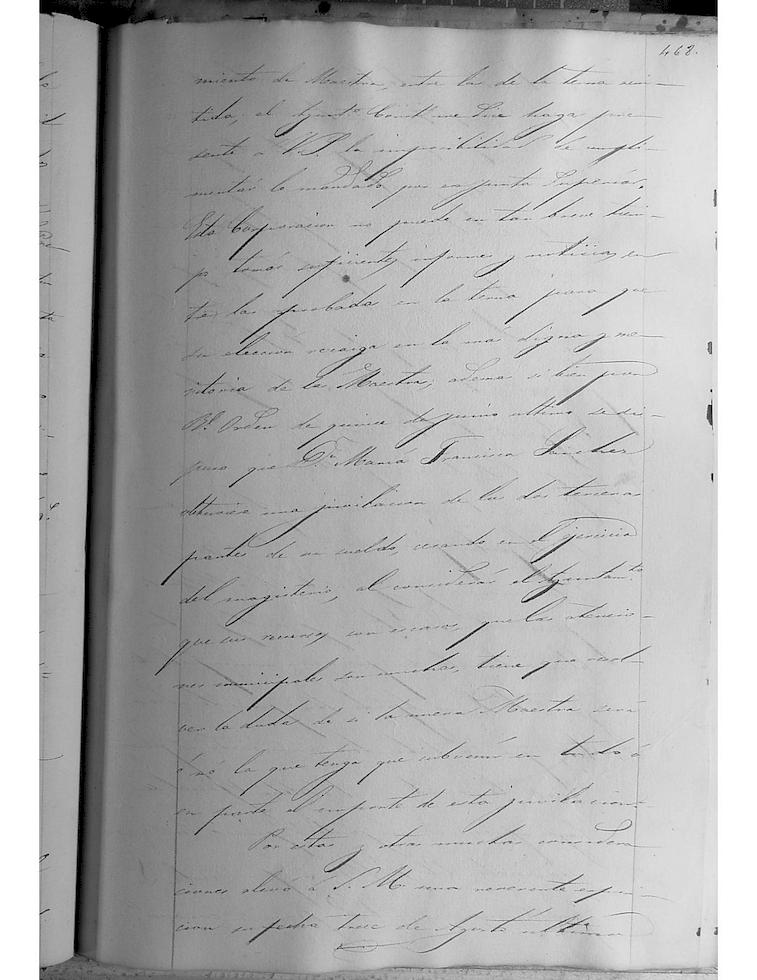 468.
miento de Maestra, entre las de la terna remi-
tida, el Ayunt.º Const.l me haga pre-
sente a V.S. la imposibilidad de cumpli-
mentar lo mandado por esa Junta Superior.
Esta Corporacion no puede en tan breve tiem-
po tomar suficientes informes y noticias en
tre las aprobadas en la terna para que
su eleccion recaiga en la mas digna y me-
ritoria de las Maestras; ademas si bien por
R.l Orden de quince de Junio ultimo se dis-
puso que D.ª Maria Francisca Sanchez
obtuviese una jubilacion de las dos terceras
partes de su sueldo, cesando en el Ejercicio
del magisterio, al considerar el Ayuntam.to
que sus recursos son escasos, que las atencio-
nes municipales son muchas, tiene que resol-
ver la duda de si la nueva Maestra sera
ó nó la que tenga que subvenir en todo ó
en parte el importe de esta jubilacion.
Por estas y otras muchas considera
ciones elevó á S. M. una reverente esposi-
cion en fecha trece de Agosto ultimo